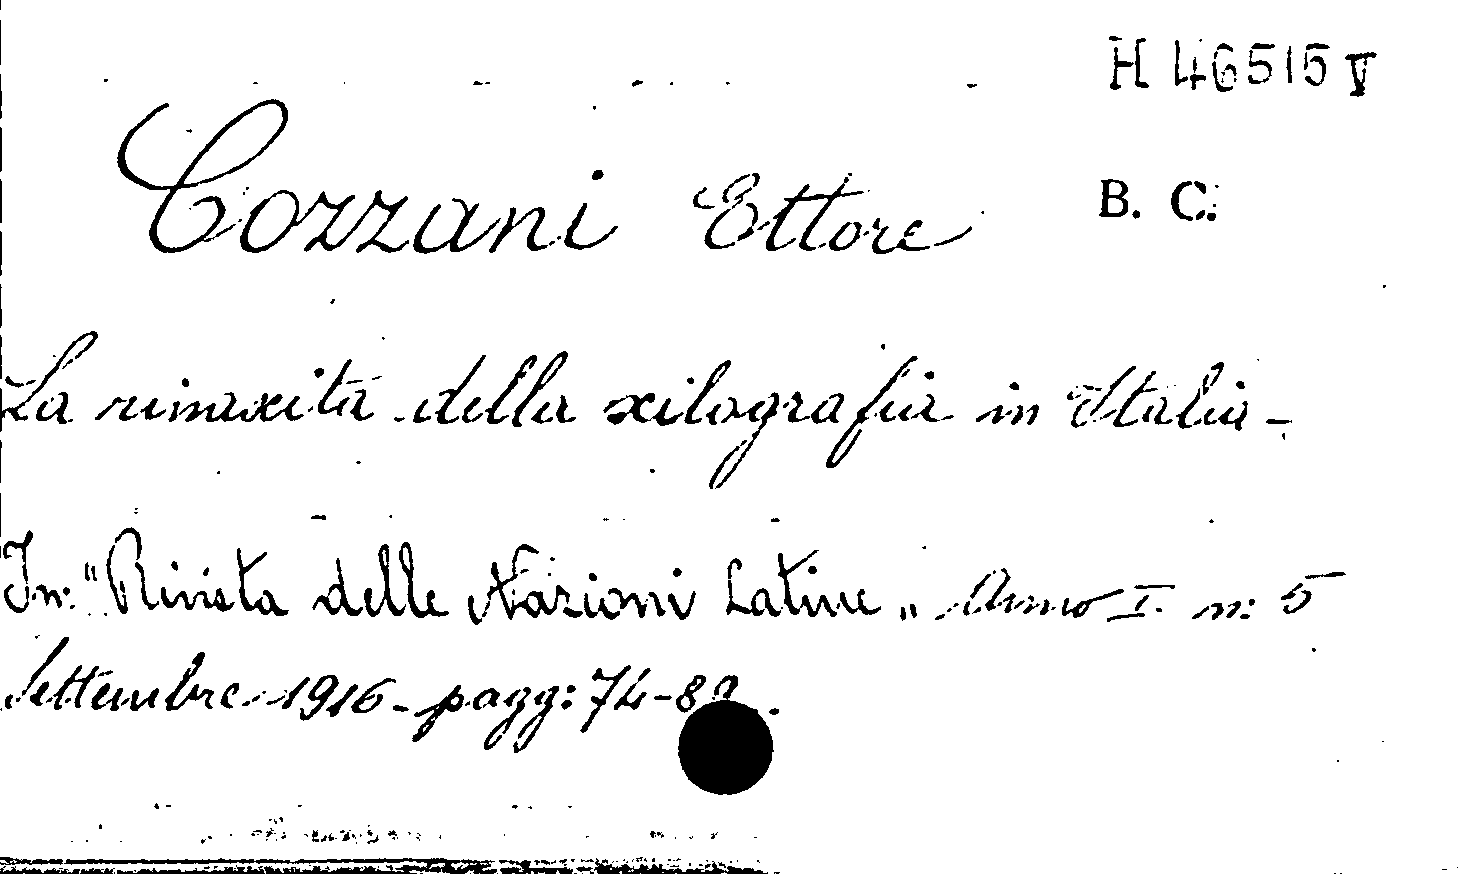 H 46515 V
Cozzani Ettore B. C.
La rinascita della xilografia in Italia -
In: "Rivista delle Nazioni Latine„ Anno I. n: 5
Settembre 1916 - pagg: 74-8